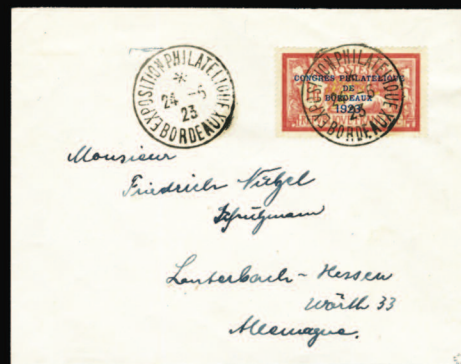 EXPOSITION PHILATELIQUE
*
24 -6
23
BORDEAUX
CONGRÈS PHILATÉLIQUE
DE
BORDEAUX
1923
EXPOSITION PHILATELIQUE
23
BORDEAUX
Monsieur
Friedrich
Lauterbach - Hessen
Wörth 33
Allemagne.